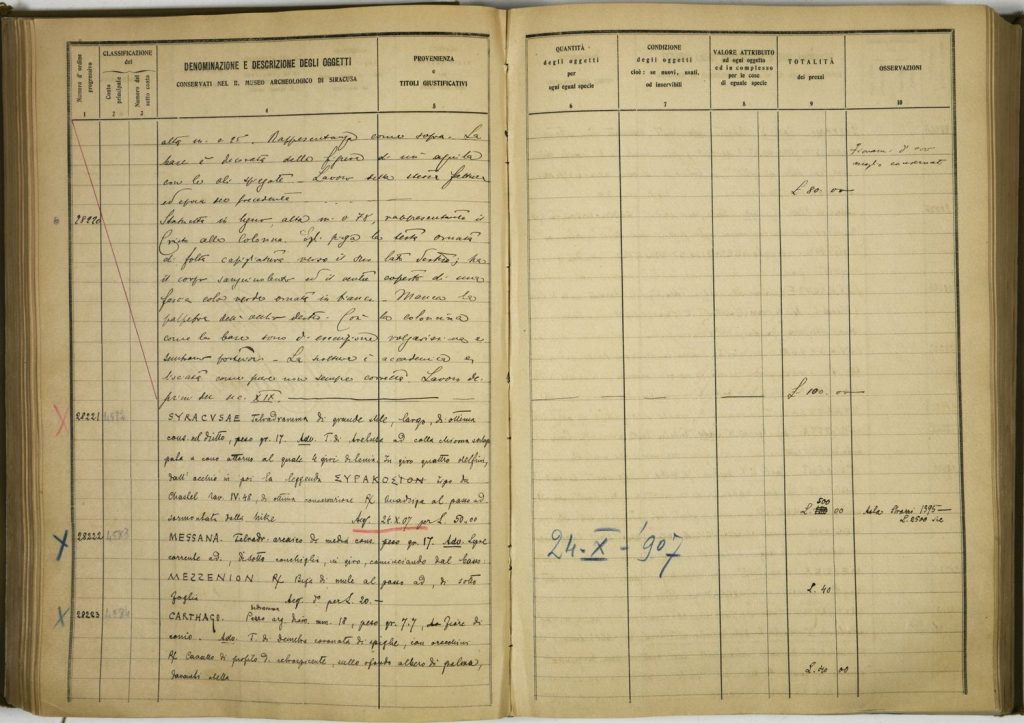 Numero d'ordine progressivo
CLASSIFICAZIONE
del
Conto principale
Numero del sotto conto
DENOMINAZIONE E DESCRIZIONE DEGLI OGGETTI
CONSERVATI NEL R. MUSEO ARCHEOLOGICO DI SIRACUSA
PROVENIENZA
e
TITOLI GIUSTIFICATIVI
1
2
3
4
5
alta m. 0.25. Rappresentanza come sopra. La
base è decorata della figura di un aquila
con le ali spiegate – Lavoro della stessa fattura
ed epoca del precedente
28220
Statuetta in legno alta m. 0.78, rappresentante il
Cristo alla Colonna. Egli piega la testa ornata
di folta capigliatura verso il suo lato destro; ha
il corpo sanguinolento ed il ventre coperto di una
fascia color verde ornata in bianco. – Manca la
palpebra dell'occhio destro. Con la colonnina
come la base sono di esecuzione
sembrano posteriori – La è accademica e
come pare non sempre corretta. Lavoro de'
primi del sec. XIX.
28221
SYRACVSAE Tetradramma di grande stile, largo, di ottima
cons. nel diritto, peso gr. 17. Ado. T. di Aretusa ad colla chioma
a cono attorno al quale 4 giri di In giro quattro delfini,
dall'occhio in poi la leggenda ΣΥΡΑΚΟΣΙΟΝ tipo du
Chastel Tav. IV. 48, di ottima conservazione R/ Quadriga al passo ad
sormontata dalla Nike Acq. 24.X.07 per L. 50.00
28222
MESSANA. Tetradr. arcaico di media cons. peso gr. 17. Ado. Lepre
corrente ad, disotto conchiglia, in giro, cominciando dal basso
MEZZENION R/ Biga di mule al passo ad, di sotto
foglia Acq. per L. 20.–
28223
CARTHAGO. Pezzo arg. diam. mm. 18, peso gr. 7.7, Fiore di
conio. Ado. T. di Demetra coronata di spighe, con orecchini
R/ Cavallo di profilo d. retrospicente, sullo sfondo albero di palma,
davanti stella
QUANTITÀ
degli oggetti
per
ogni egual specie
CONDIZIONE
degli oggetti
cioè: se nuovi, usati,
od inservibili
VALORE ATTRIBUITO
ad ogni oggetto
ed in complesso
per le cose
di eguale specie
TOTALITÀ
dei prezzi
OSSERVAZIONI
6
7
8
9
10
meglio conservat
£ 80. 00
£ 100. 00
500
L. 00
Asta 1395 –
L. 2500
24-X-'907
L. 40
L. 40 00